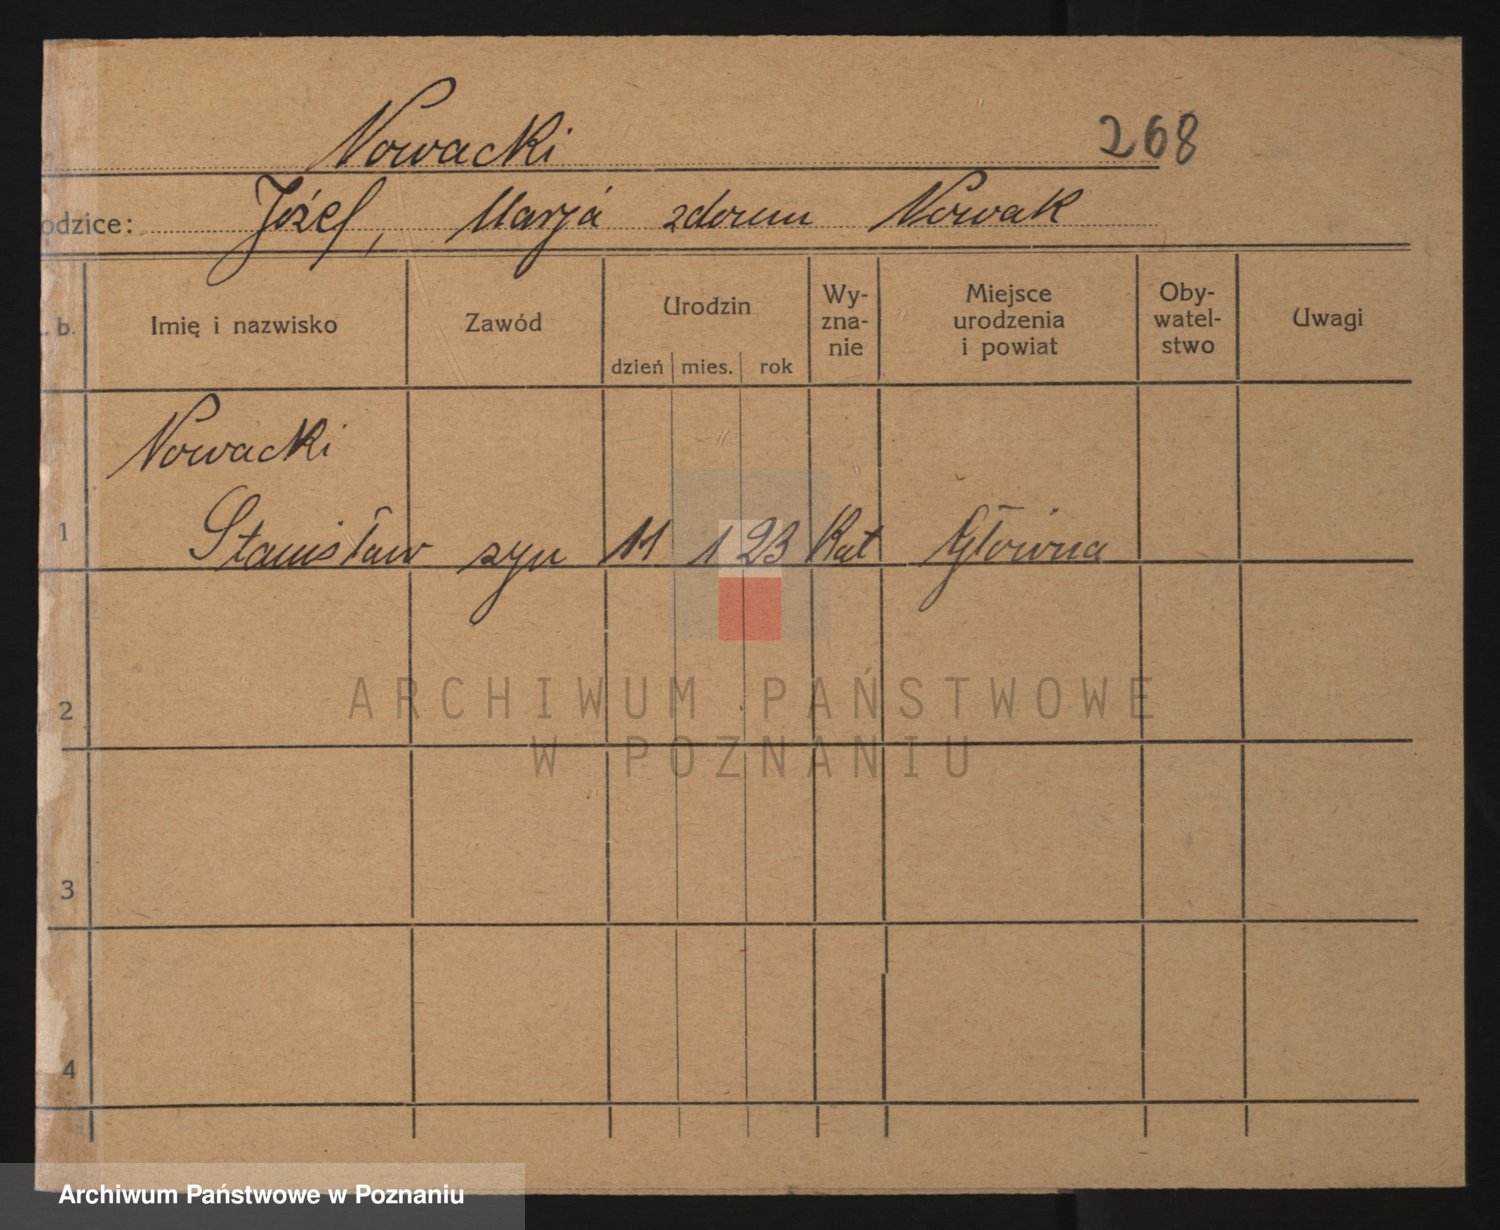 Nowacki 268
odzice: Józef, Marja zdomu Nowak
. b. Imię i nazwisko Zawód Urodzin dzień mies. rok Wy-zna-nie Miejsce urodzenia i powiat Oby-watel-stwo Uwagi
Nowacki
1 Stanisław syn 11 1 23 Kat Główna
2
ARCHIWUM PAŃSTWOWE
W POZNANIU
3
4
Archiwum Państwowe w Poznaniu